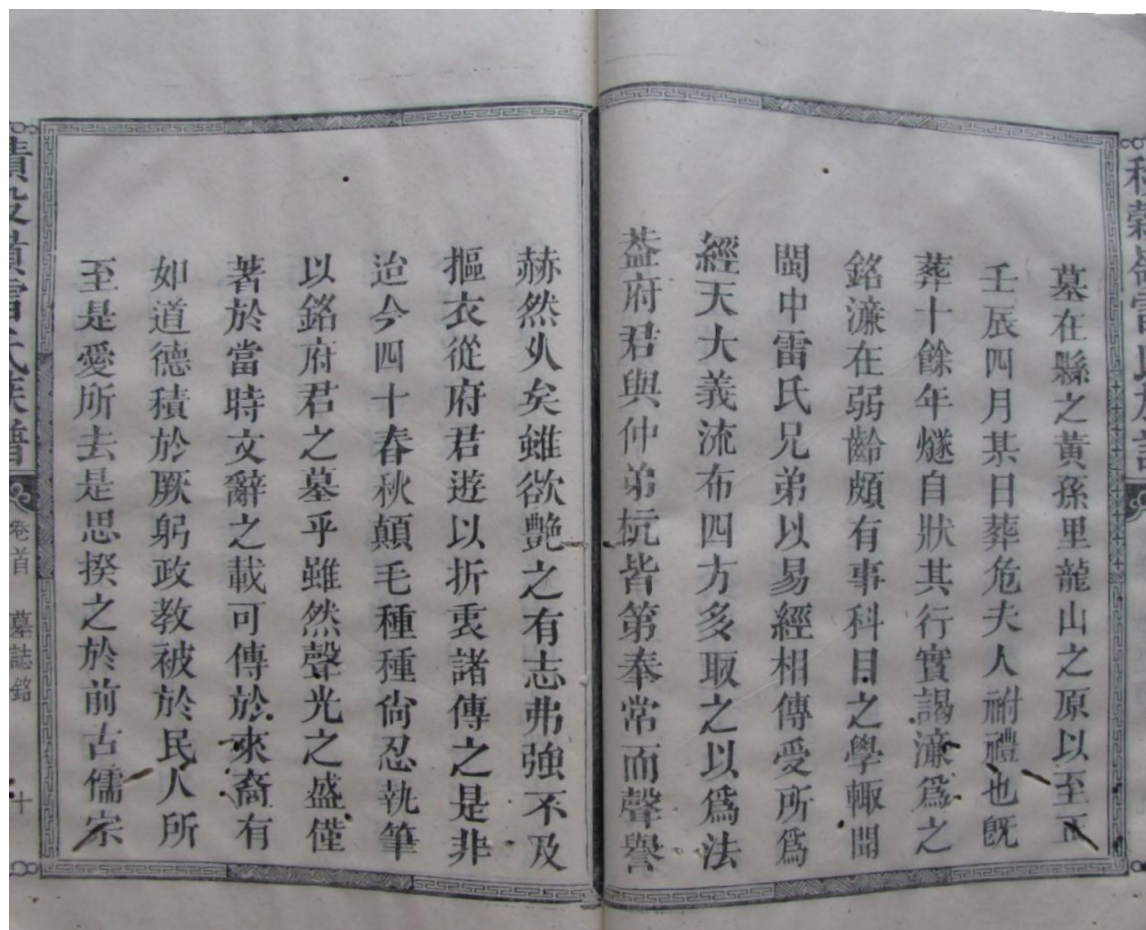 墓在縣之黃孫里龍山之原以至正
壬辰四月某日葬危夫人祔禮也既
葬十餘年燧自狀其行實謁濂爲之
銘濂在弱齡頗有事科目之學輙聞
閩中雷氏兄弟以易經相傳受所爲
經天大義流布四方多取之以爲法
葢府君與仲弟杬皆第奉常而聲譽
赫然乆矣雖欲艶之有志弗強不及
摳衣從府君遊以折衷諸傳之是非
迨今四十春秋顛毛種種尙忍執筆
以銘府君之墓乎雖然聲光之盛僅
著於當時文辭之載可傳於來裔有
如道德積於厥躬政教被於民人所
至是愛所去是思揆之於前古儒宗
雷氏族譜
卷首 墓誌銘
十